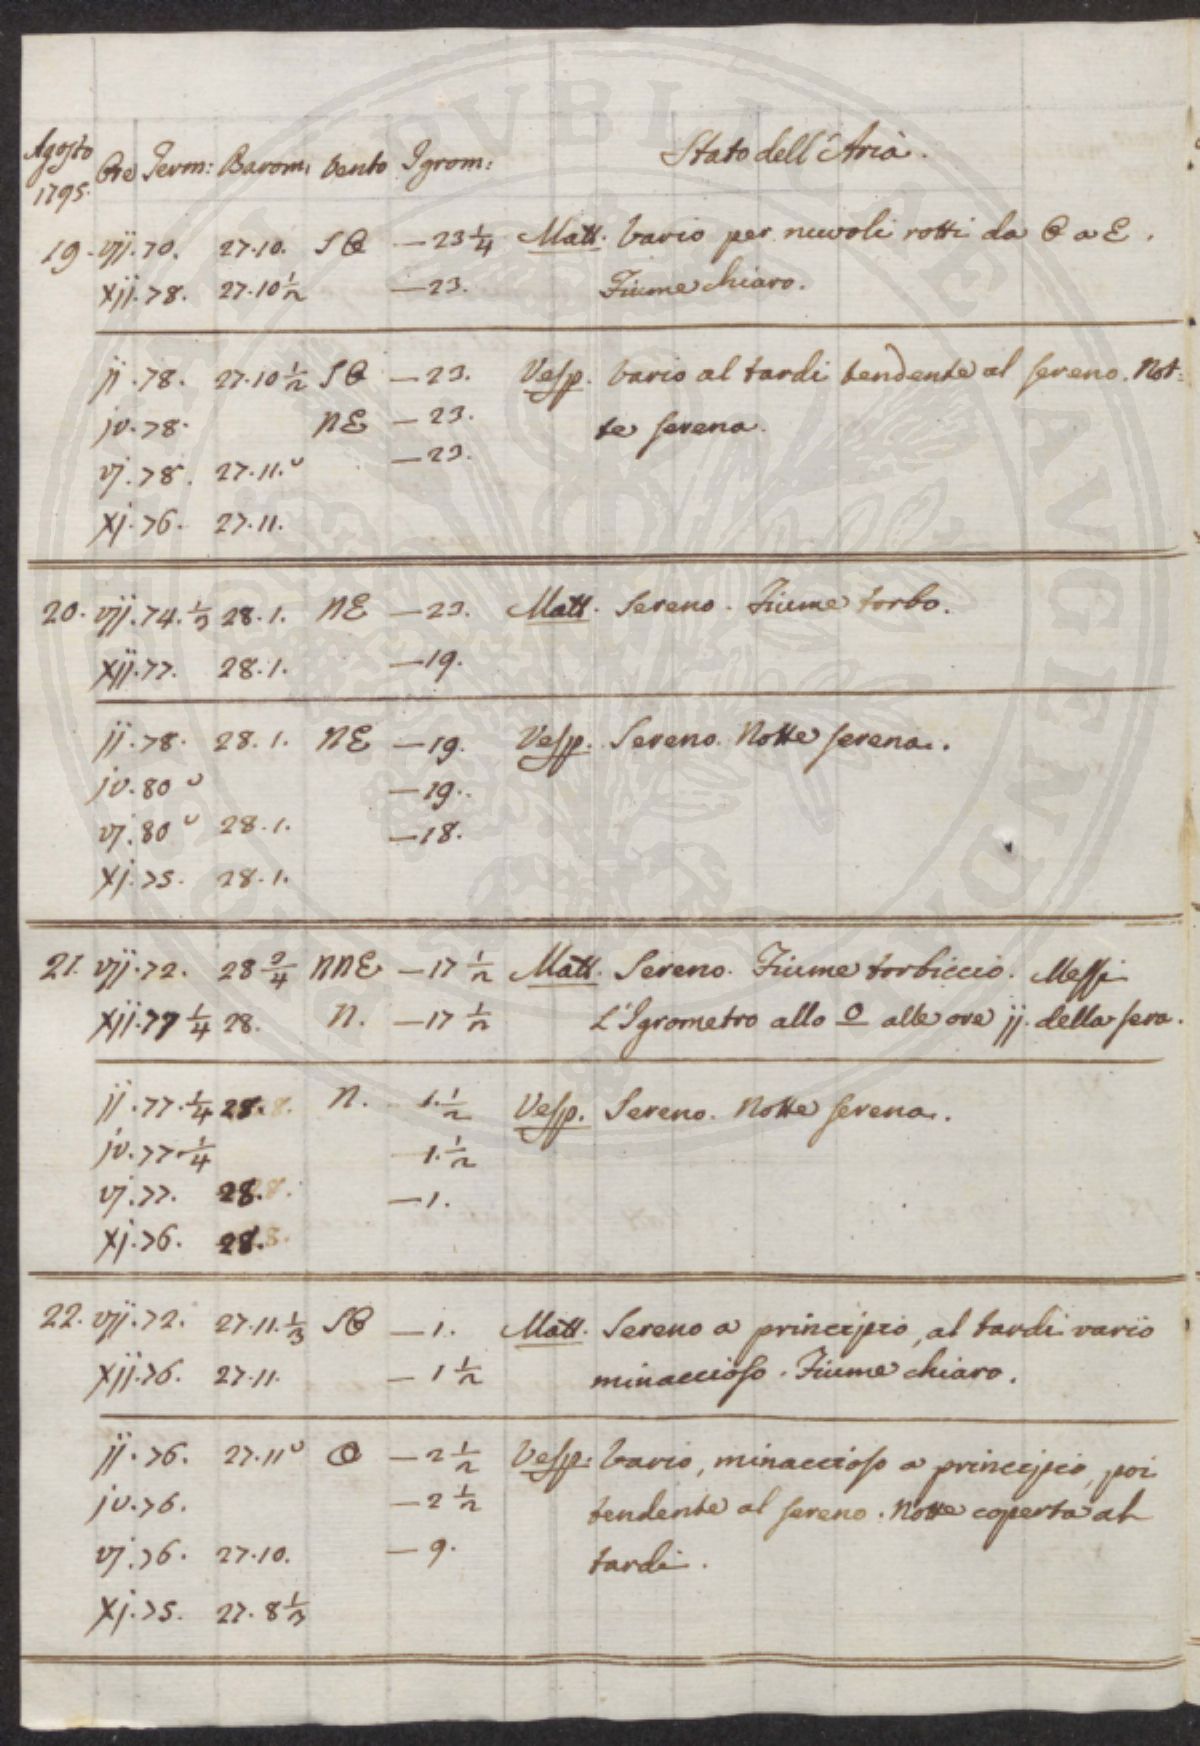 Agosto 1795. Ore Term: Barom: Vento Igrom: Stato dell'Aria.
19. vij. 70. 27.10. SO — 23 1/4 Matt. Vario per nuvoli rotti da O a E.
xij. 78. 27.10 1/2 — 23. Fiume chiaro.
ij. 78. 27.10 1/2 SO — 23. Vesp. Vario al tardi tendente al sereno. Not:
iv. 78. NE — 23. te serena.
vj. 78. 27.11.° — 23.
xj. 76. 27.11.
20. vij. 74. 1/3 28.1. NE — 23. Matt. Sereno. Fiume torbo.
xij. 77. 28.1. — 19.
ij. 78. 28.1. NE — 19. Vesp. Sereno. Notte serena.
iv. 80 ° — 19.
vj. 80 ° 28.1. — 18.
xj. 75. 28.1.
21. vij. 72. 28 3/4 NNE — 17 1/2 Matt. Sereno. Fiume torbiccio. Messi
xij. 77 1/4 28. N. — 17 1/2 L'Igrometro allo 0 alle ore ij. della sera.
ij. 77. 1/4 28. N. 1. 1/2 Vesp. Sereno. Notte serena.
iv. 77 1/4 1. 1/2
vj. 77. 28. — 1.
xj. 76. 28.
22. vij. 72. 27.11. 1/3 SO — 1. Matt. Sereno a principio, al tardi vario
xij. 76. 27.11. — 1 1/2 minaccioso. Fiume chiaro.
ij. 76. 27.11° O — 2 1/2 Vesp: Vario, minaccioso a principio, poi
iv. 76. — 2 1/2 tendente al sereno. Notte coperta al
vj. 76. 27.10. — 9. tardi.
xj. 75. 27. 8 1/3